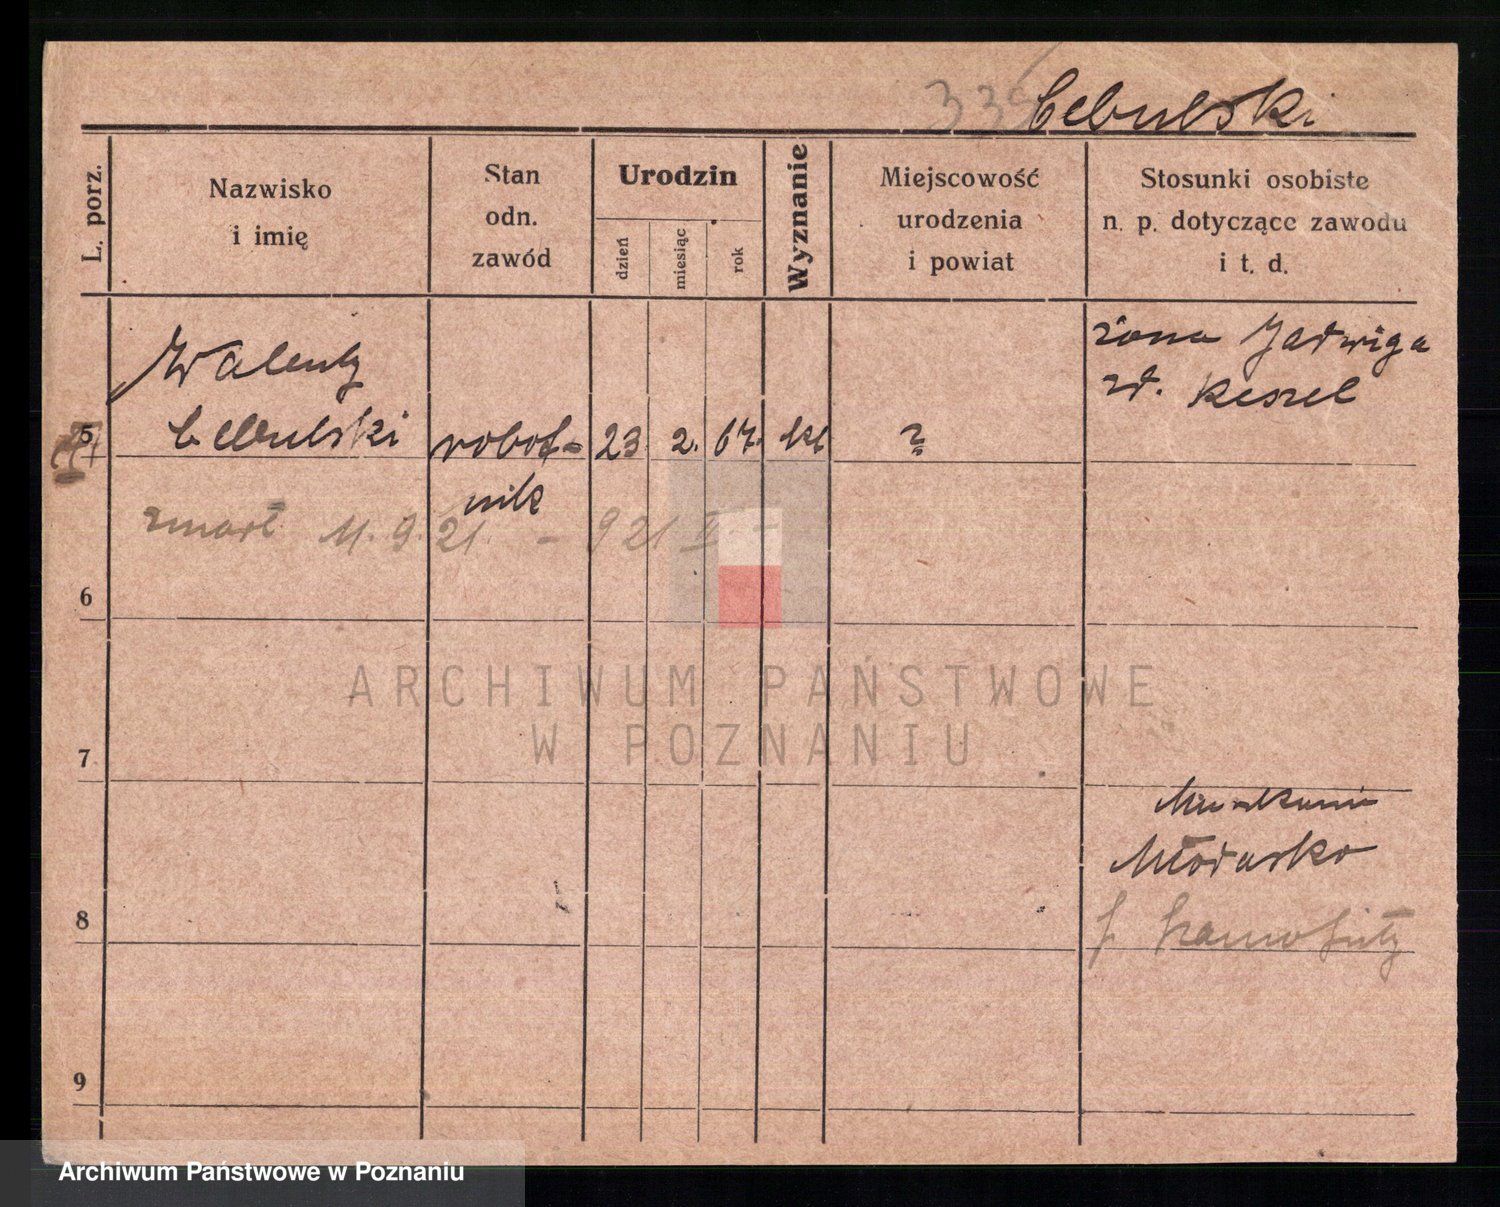 339 Cebulski
L. porz.
Nazwisko
i imię
Stan
odn.
zawód
Urodzin
dzień
miesiąc
rok
Wyznanie
Miejscowość
urodzenia
i powiat
Stosunki osobiste
n. p. dotyczące zawodu
i t. d.
żona Jadwiga
zd. Keszel
Walenty
5 Cebulski robot- 23. 2. 67. kt ?
nik
zmarł 11. 9. 21. - 921 II -
6
ARCHIWUM PAŃSTWOWE
W POZNANIU
7
Młodasko
8
9
Archiwum Państwowe w Poznaniu